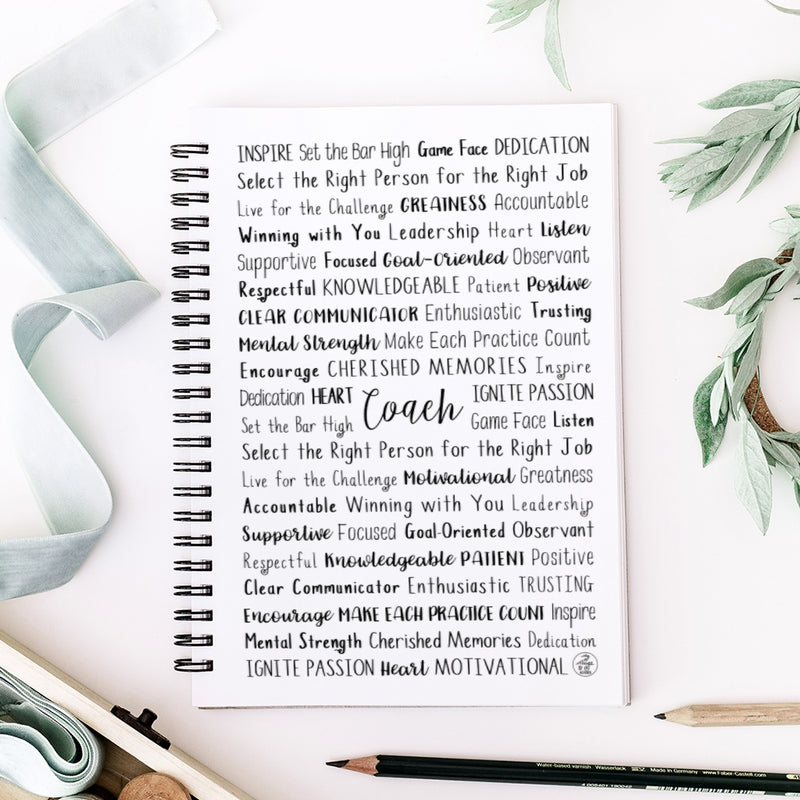 INSPIRE Set the Bar High Game Face DEDICATION
Select the Right Person for the Right Job
Live for the Challenge GREATNESS Accountable
Winning with You Leadership Heart Listen
Supportive Focused Goal-Oriented Observant
Respectful KNOWLEDGEABLE Patient Positive
CLEAR COMMUNICATOR Enthusiastic Trusting
Mental Strength Make Each Practice Count
Encourage CHERISHED MEMORIES Inspire
Dedication HEART Coach IGNITE PASSION
Set the Bar High Game Face Listen
Select the Right Person for the Right Job
Live for the Challenge Motivational Greatness
Accountable Winning with You Leadership
Supportive Focused Goal-Oriented Observant
Respectful Knowledgeable PATIENT Positive
Clear Communicator Enthusiastic TRUSTING
Encourage MAKE EACH PRACTICE COUNT Inspire
Mental Strength Cherished Memories Dedication
IGNITE PASSION Heart MOTIVATIONAL
Water-based varnish Wasserlack Made in Germany www.Faber-Castell.com